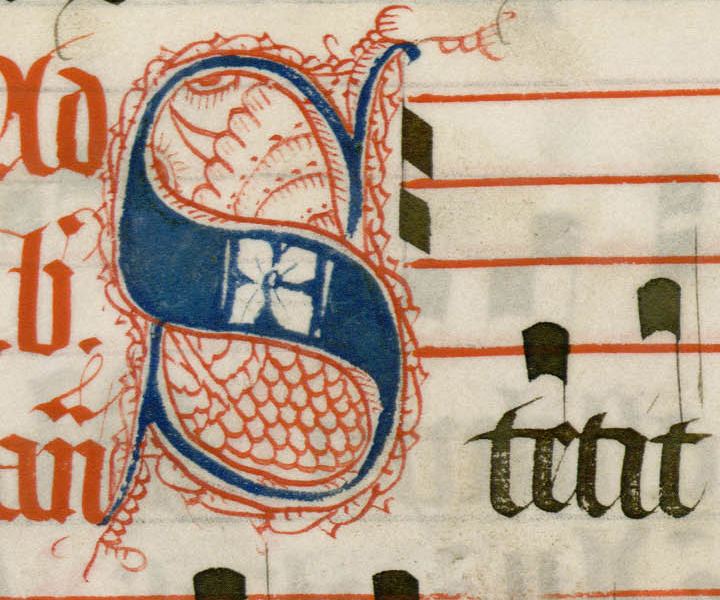 Ad
b.
an̄
Stetit